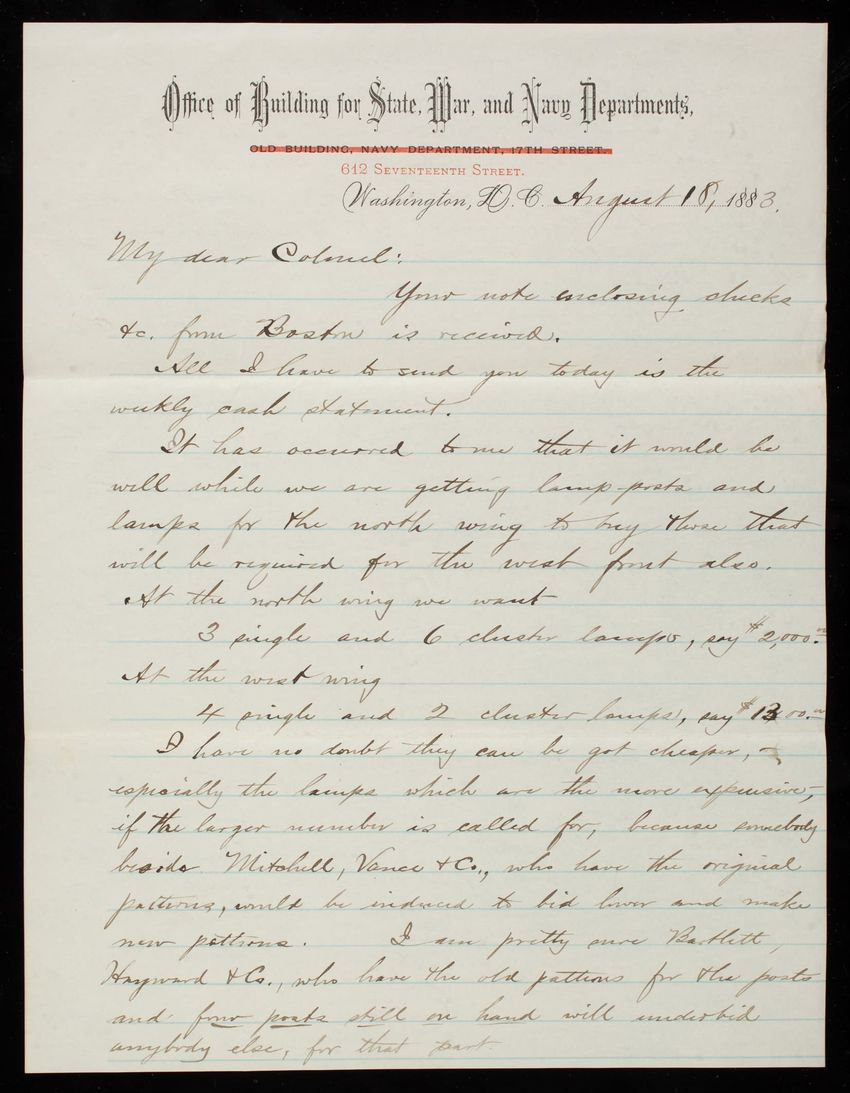 Office of Building for State, War, and Navy Departments,
OLD BUILDING, NAVY DEPARTMENT, 17TH STREET.
612 SEVENTEENTH STREET.
Washington, D. C. August 18, 1883.
My dear Colonel:
Your note enclosing checks
&c. from Boston is received.
All I have to send you today is the
weekly cash statement.
It has occurred to me that it would be
well while we are getting lamp-posts and
lamps for the north wing to buy those that
will be required for the west front also.
At the north wing we want
3 single and 6 cluster lamps, say $2,000.
At the west wing
4 single and 2 cluster lamps, say $1300.
I have no doubt they can be got cheaper, -
especially the lamps which are the more expensive, -
if the larger number is called for, because somebody
beside Mitchell, Vance & Co., who have the original
patterns, would be induced to bid lower and make
new patterns. I am pretty sure Bartlett,
Hayward & Co., who have the old patterns for the posts
and four posts still on hand will underbid
anybody else, for that part.